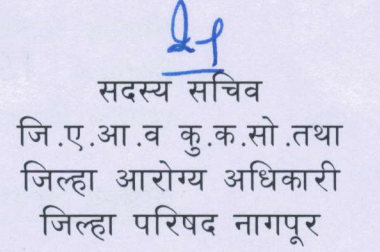 सदस्य सचिव
जि.ए.आ.व कु.क.सो.तथा
जिल्हा आरोग्य अधिकारी
जिल्हा परिषद नागपूर